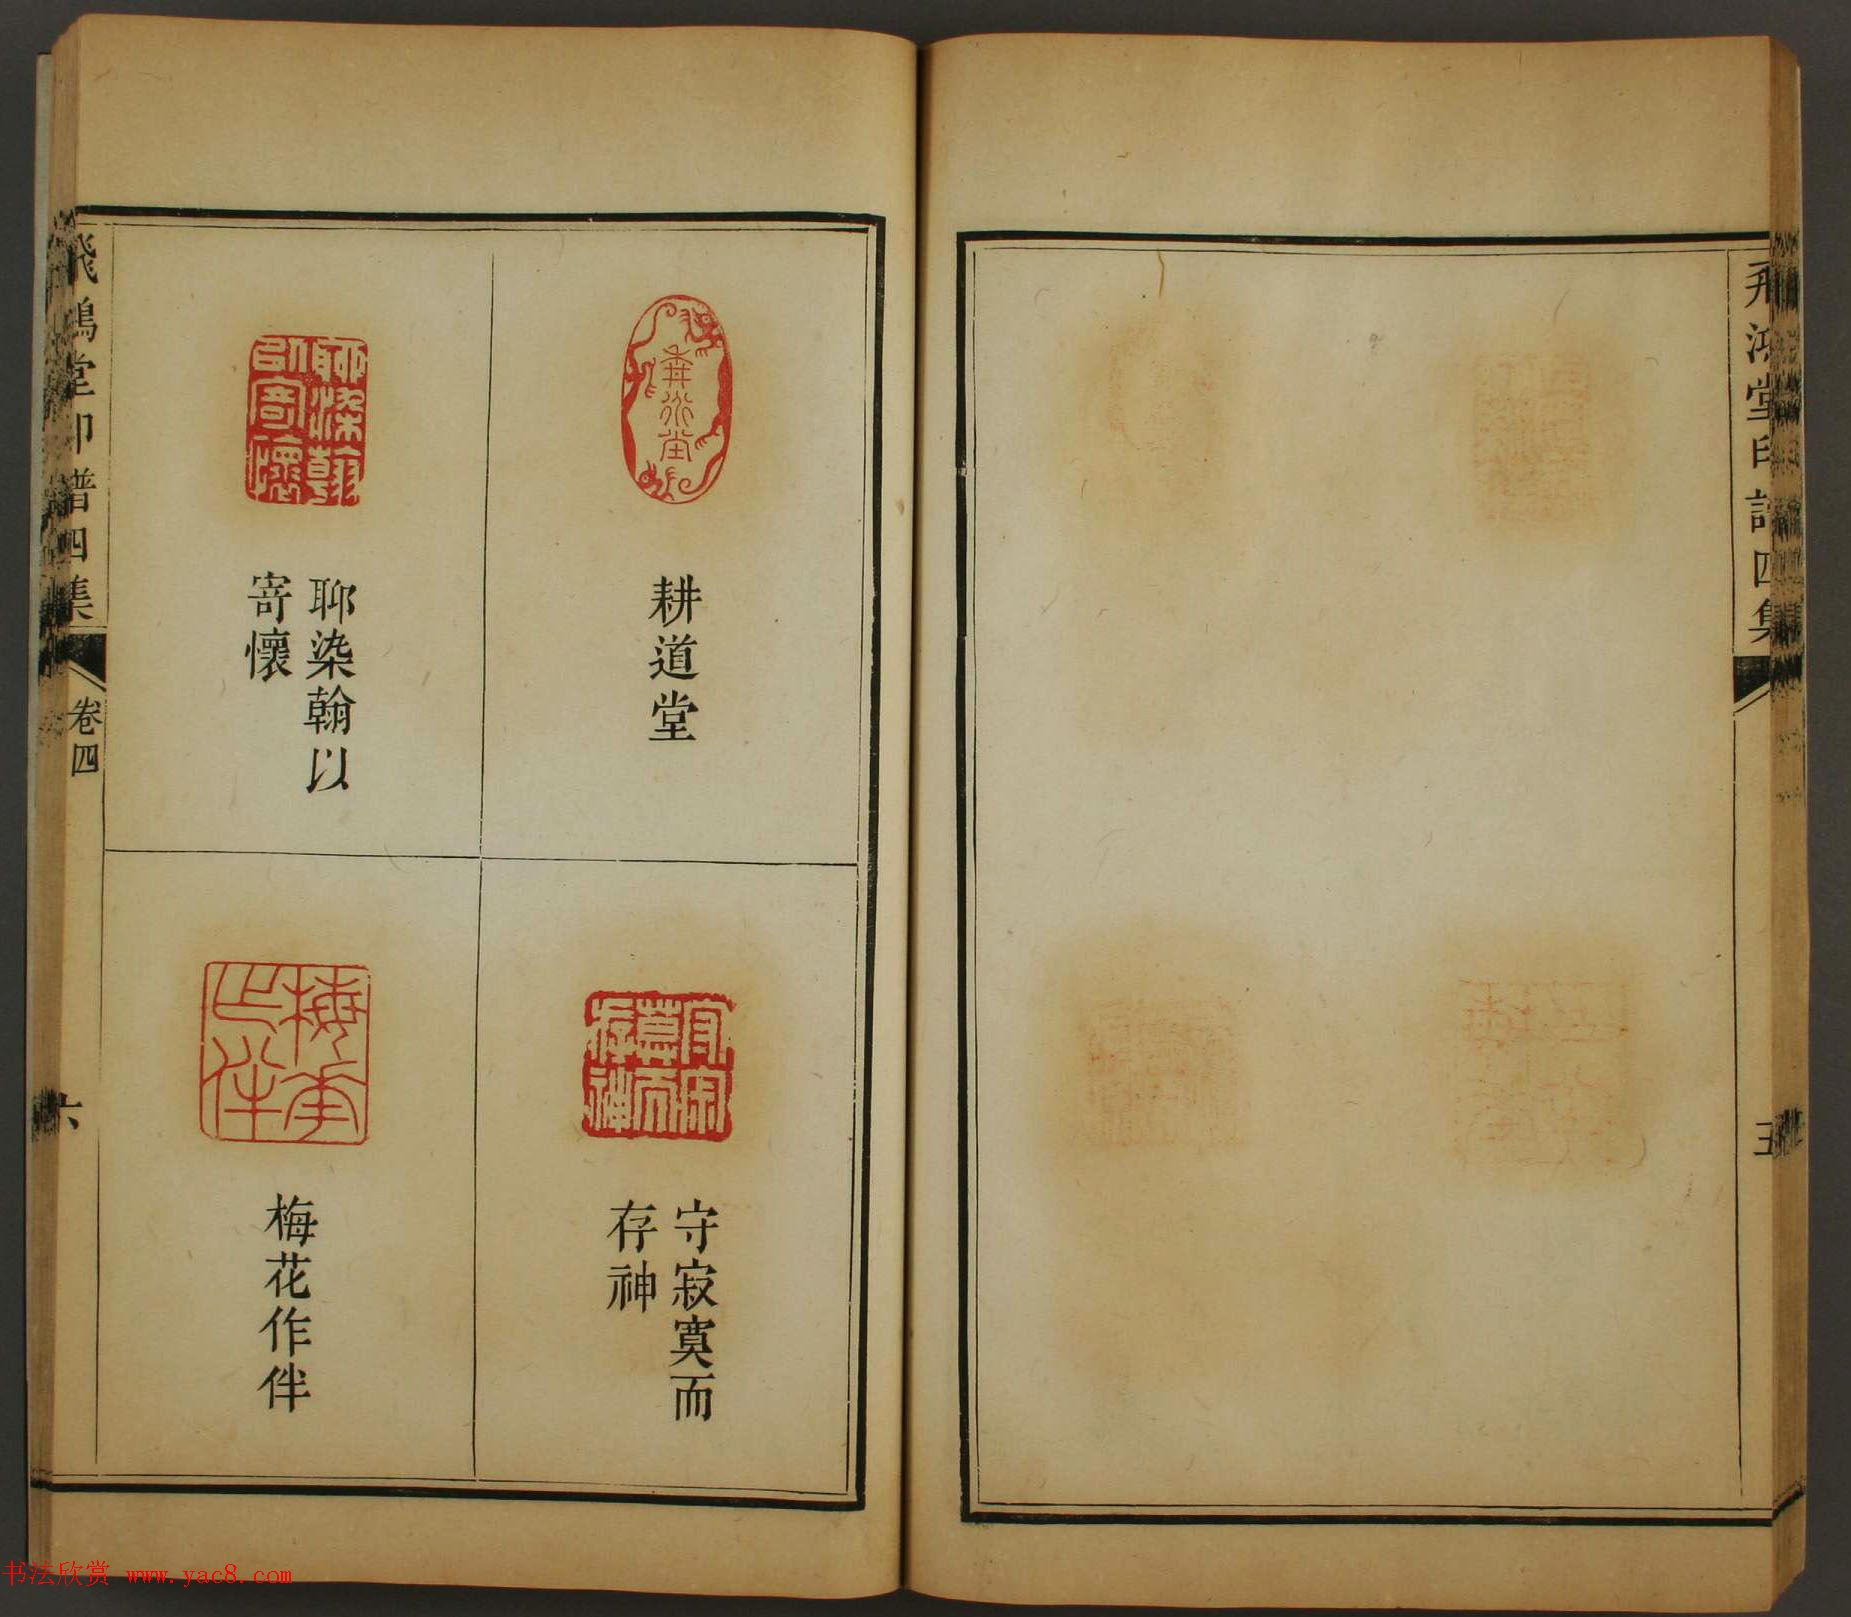 飛鴻堂印譜四集
五
耕道堂
聊染翰以
寄懷
守寂寞而
存神
梅花作伴
飛鴻堂印譜四集
卷四
六
书法欣赏 www.yac8.com